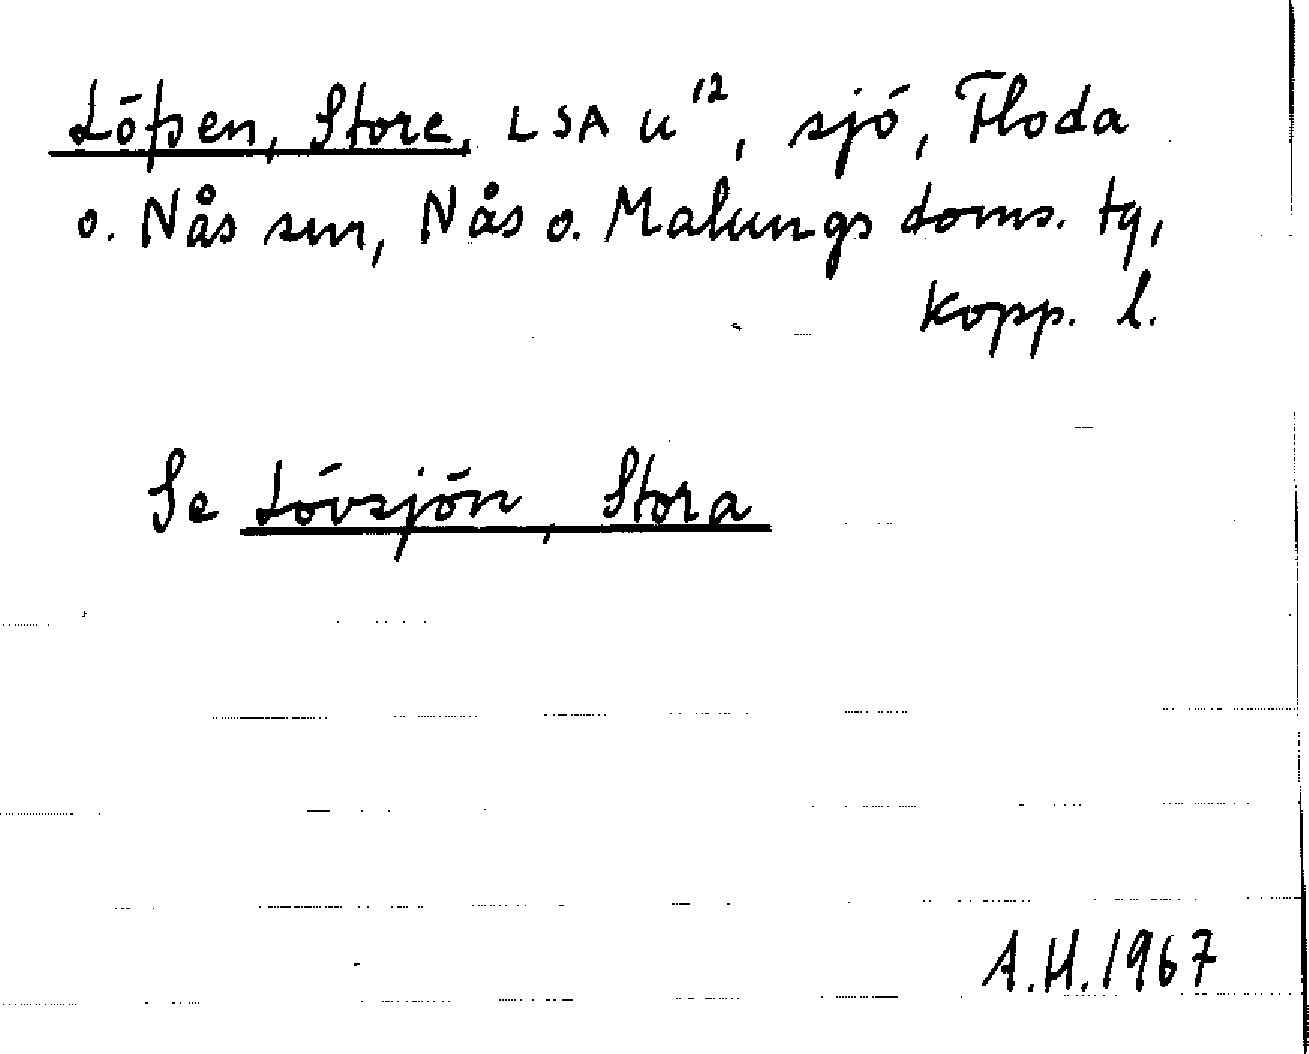 Löpsen, Store, LSA U¹², sjö, Floda
o. Nås snr, Nås o. Malungs doms. tg,
Kopp. l.
Se Lövsjön, Stora
A.H. 1967